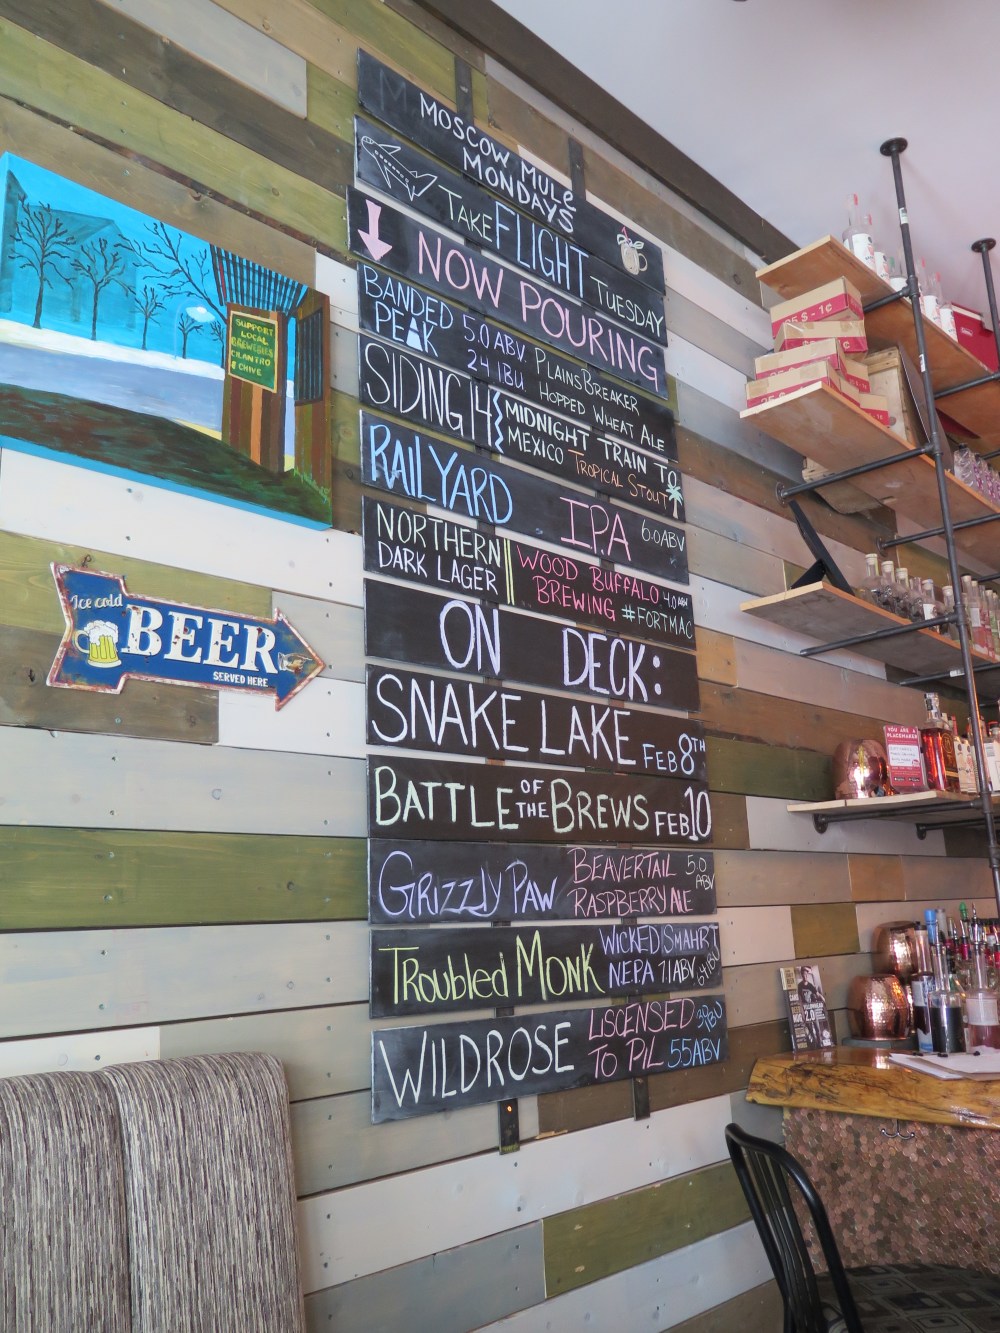 MOSCOW MULE
MONDAYS
TAKE FLIGHT TUESDAY
NOW POURING
BANDED PEAK 5.0 ABV PLAINSBREAKER
24 IBU HOPPED WHEAT ALE
SIDING 14 MIDNIGHT TRAIN TO
MEXICO TROPICAL STOUT
RAILYARD IPA 6.0 ABV
NORTHERN
DARK LAGER
WOOD BUFFALO 4.0 ABV
BREWING #FORTMAC
ON DECK:
SNAKE LAKE FEB 8TH
BATTLE OF THE BREWS FEB 10
GRIZZLY PAW BEAVERTAIL 5.0 ABV
RASPBERRY ALE
TROUBLED MONK WICKED SMAHRT
NEPA 71ABV
WILDROSE LISCENSED
TO PIL 55ABV
SUPPORT
LOCAL
BREWERIES
CILANTRO
& CHIVE
Ice cold
BEER
SERVED HERE
25 $ - 1¢
YOU ARE A
PLACEMAKER